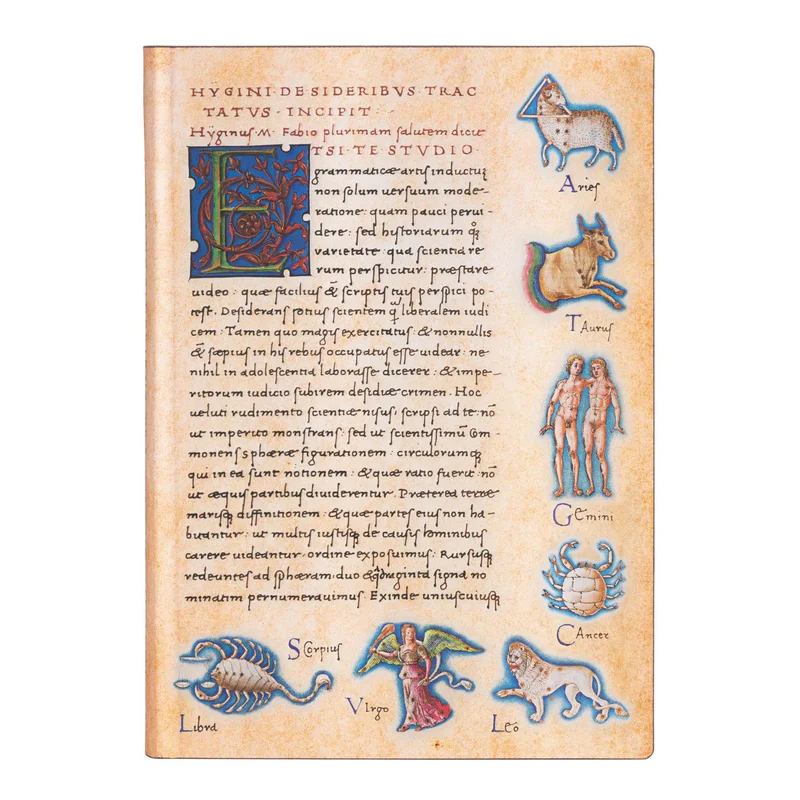 HŸGINI · DE SIDERIBVS · TRAC
TATVS · INCIPIT · -
Hÿginus · M · Fabio plurimam salutem dicit
ETSI · TE STVDIO ·
grammaticæ artis inductus
non solum uersuum mode-
ratione : quam pauci perui-
dere : sed historiarum qꝫ
uarietate qua scientia re
rum perspicitur : præstare
uideo : quæ facilius & scriptis tuis perspici po-
test . Desiderans potius scientem q̃ liberalem iudi
cem . Tamen quo magis exercitatus : & nonnullis
& sæpius in his rebus occupatus esse uidear : ne-
nihil in adolescentia laborasse dicerer : & impe-
ritorum iudicio subirem desidiæ crimen . Hoc
ueluti rudimento scientiæ nisus , scripsi ad te : nō
ut imperito monstrans : sed ut scientissimū com-
monens sphæræ figurationem : circulorumqꝫ
qui in ea sunt notionem : & quæ ratio fuerit nō
ut æquis partibus diuiderentur . Præterea terræ
marisqꝫ diffinitionem : & quæ partes eius non ha-
buantur : ut multis iustisqꝫ de causis hominibus
carere uideantur . ordine exposuimus : Rursusqꝫ
redeuntes ad sphæram . duo & quadraginta signa no
minatim pernumerauimus . Exinde uniuscuiusqꝫ
Aries
Taurus
Gemini
Cancer
Leo
Virgo
Scorpius
Libra